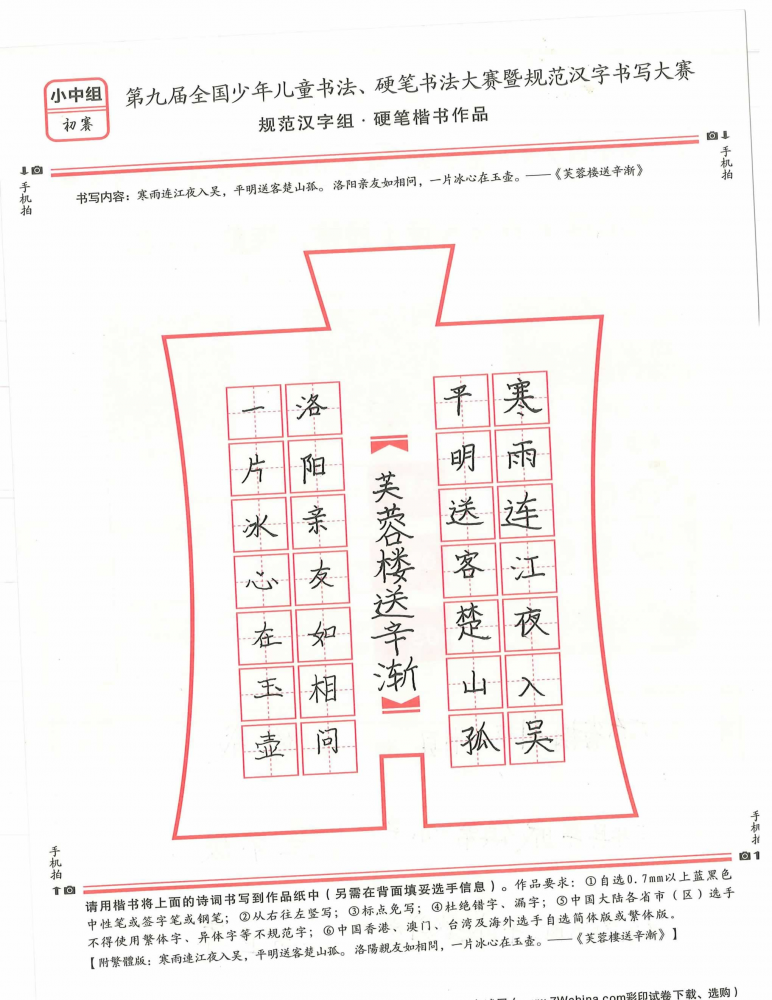 小中组
初赛
第九届全国少年儿童书法、硬笔书法大赛暨规范汉字书写大赛
规范汉字组·硬笔楷书作品
手机拍
手机拍
书写内容：寒雨连江夜入吴，平明送客楚山孤。洛阳亲友如相问，一片冰心在玉壶。——《芙蓉楼送辛渐》
寒雨连江夜入吴
平明送客楚山孤
芙蓉楼送辛渐
洛阳亲友如相问
一片冰心在玉壶
手机拍
手机拍
请用楷书将上面的诗词书写到作品纸中（另需在背面填妥选手信息）。作品要求：①自选0.7mm以上蓝黑色
中性笔或签字笔或钢笔；②从右往左竖写；③标点免写；④杜绝错字、漏字；⑤中国大陆各省市（区）选手
不得使用繁体字、异体字等不规范字；⑥中国香港、澳门、台湾及海外选手自选简体版或繁体版。
【附繁體版：寒雨連江夜入吴，平明送客楚山孤。洛陽親友如相問，一片冰心在玉壶。——《芙蓉楼送辛漸》】
彩印试卷下载、选购）